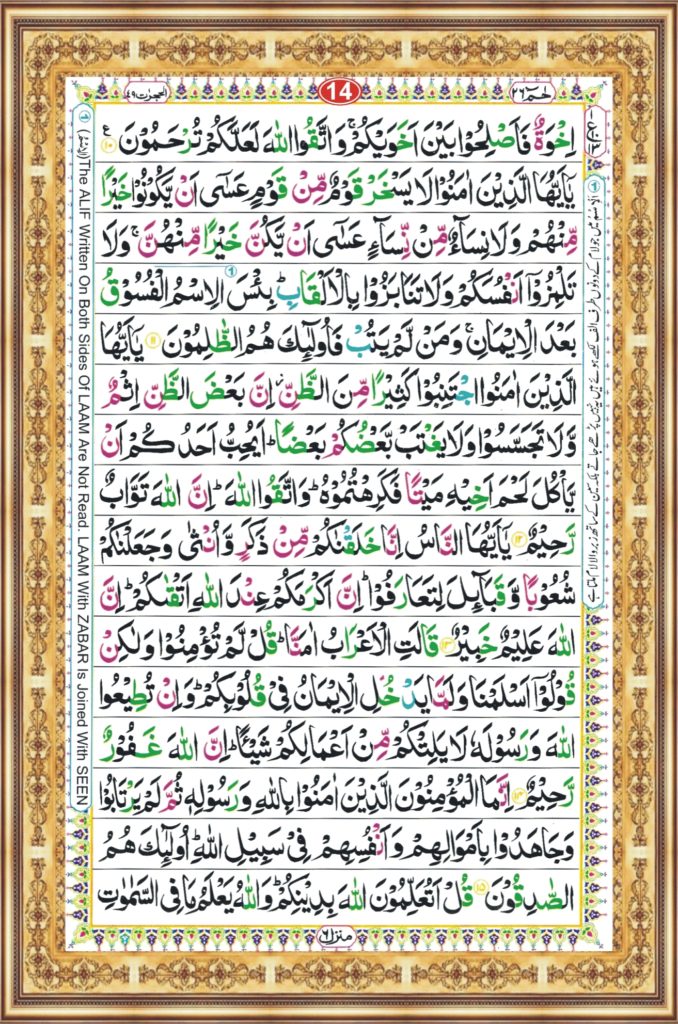 الحجرٰت ٤٩
14
حٰمٓ ٢٦
اِخْوَةٌ فَاَصْلِحُوْا بَيْنَ اَخَوَيْكُمْ ۚ وَاتَّقُوا اللّٰهَ لَعَلَّكُمْ تُرْحَمُوْنَ ﴿١٠﴾ ع
يٰۤاَيُّهَا الَّذِيْنَ اٰمَنُوْا لَا يَسْخَرْ قَوْمٌ مِّنْ قَوْمٍ عَسٰۤى اَنْ يَّكُوْنُوْا خَيْرًا
مِّنْهُمْ وَلَا نِسَآءٌ مِّنْ نِّسَآءٍ عَسٰۤى اَنْ يَّكُنَّ خَيْرًا مِّنْهُنَّ ۚ وَلَا
تَلْمِزُوْۤا اَنْفُسَكُمْ وَلَا تَنَابَزُوْا بِالْاَلْقَابِ ؕ بِئْسَ الِاسْمُ الْفُسُوْقُ
بَعْدَ الْاِيْمَانِ ۚ وَمَنْ لَّمْ يَتُبْ فَاُولٰٓئِكَ هُمُ الظّٰلِمُوْنَ ﴿١١﴾ يٰۤاَيُّهَا
الَّذِيْنَ اٰمَنُوا اجْتَنِبُوْا كَثِيْرًا مِّنَ الظَّنِّ ؗ اِنَّ بَعْضَ الظَّنِّ اِثْمٌ
وَّلَا تَجَسَّسُوْا وَلَا يَغْتَبْ بَّعْضُكُمْ بَعْضًا ؕ اَيُحِبُّ اَحَدُكُمْ اَنْ
يَّاْكُلَ لَحْمَ اَخِيْهِ مَيْتًا فَكَرِهْتُمُوْهُ ؕ وَاتَّقُوا اللّٰهَ ؕ اِنَّ اللّٰهَ تَوَّابٌ
رَّحِيْمٌ ﴿١٢﴾ يٰۤاَيُّهَا النَّاسُ اِنَّا خَلَقْنٰكُمْ مِّنْ ذَكَرٍ وَّاُنْثٰى وَجَعَلْنٰكُمْ
شُعُوْبًا وَّقَبَآئِلَ لِتَعَارَفُوْا ؕ اِنَّ اَكْرَمَكُمْ عِنْدَ اللّٰهِ اَتْقٰىكُمْ ؕ اِنَّ
اللّٰهَ عَلِيْمٌ خَبِيْرٌ ﴿١٣﴾ قَالَتِ الْاَعْرَابُ اٰمَنَّا ؕ قُلْ لَّمْ تُؤْمِنُوْا وَلٰكِنْ
قُوْلُوْۤا اَسْلَمْنَا وَلَمَّا يَدْخُلِ الْاِيْمَانُ فِيْ قُلُوْبِكُمْ ؕ وَاِنْ تُطِيْعُوا
اللّٰهَ وَرَسُوْلَهٗ لَا يَلِتْكُمْ مِّنْ اَعْمَالِكُمْ شَيْـًٔا ؕ اِنَّ اللّٰهَ غَفُوْرٌ
رَّحِيْمٌ ﴿١٤﴾ اِنَّمَا الْمُؤْمِنُوْنَ الَّذِيْنَ اٰمَنُوْا بِاللّٰهِ وَرَسُوْلِهٖ ثُمَّ لَمْ يَرْتَابُوْا
وَجَاهَدُوْا بِاَمْوَالِهِمْ وَاَنْفُسِهِمْ فِيْ سَبِيْلِ اللّٰهِ ؕ اُولٰٓئِكَ هُمُ
الصّٰدِقُوْنَ ﴿١٥﴾ قُلْ اَتُعَلِّمُوْنَ اللّٰهَ بِدِيْنِكُمْ ؕ وَاللّٰهُ يَعْلَمُ مَا فِي السَّمٰوٰتِ
منزل ٦
The ALIF Written On Both Sides Of LAAM Are Not Read. LAAM With ZABAR Is Joined With SEEN